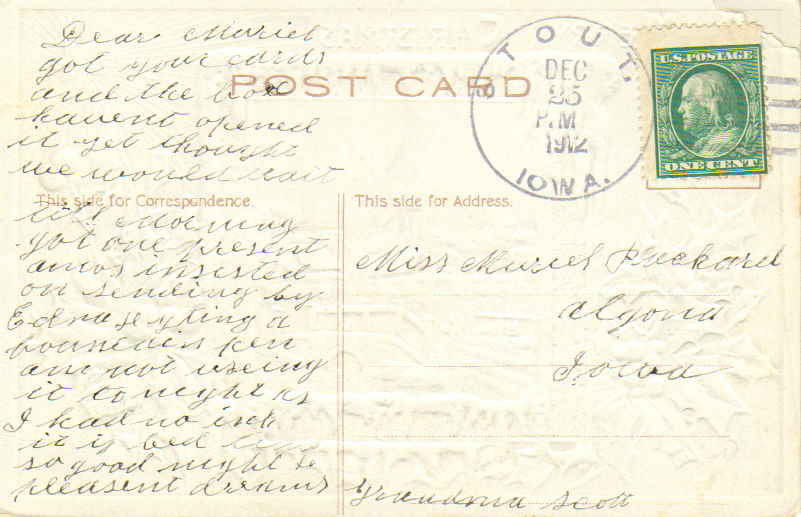 Dear Muriel
got your cards
and the box
havent opened
it yet thought
we would wait
till Morning
got one present
amos insisted
on sending by
Edna
a
pen
am not useing
it tonight as
I had no ink
it is bed time
so good night &
pleasent dreams
Grandma Scott
POST CARD
This side for Correspondence.
This side for Address.
STOUT,
DEC
25
P.M
1912
IOWA.
U.S. POSTAGE
ONE CENT
Miss Muriel Packard
Algona
Iowa